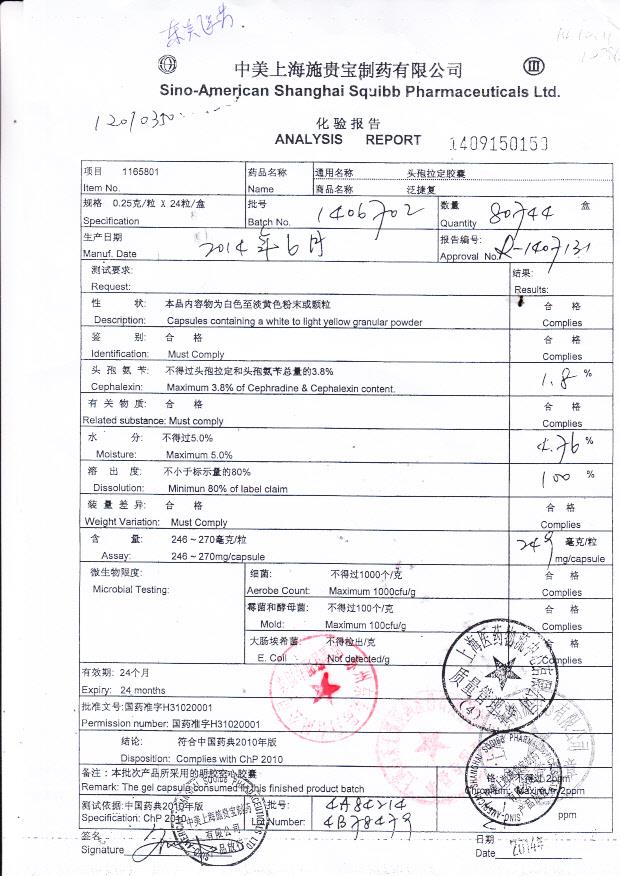 中美上海施贵宝制药有限公司
Sino-American Shanghai Squibb Pharmaceuticals Ltd.
1201035
化验报告
ANALYSIS REPORT 1409150150
项目 1165801 药品名称 通用名称 头孢拉定胶囊
Item No. Name 商品名称 泛捷复
规格 0.25克/粒 X 24粒/盒 批号 1406702 数量 80744 盒
Specification Batch No. Quantity
生产日期 2014年6月 报告编号: R-1407131
Manuf. Date Approval No.
测试要求: 结果:
Request: Results:
性 状: 本品内容物为白色至淡黄色粉末或颗粒 合 格
Description: Capsules containing a white to light yellow granular powder Complies
鉴 别: 合 格 合 格
Identification: Must Comply Complies
头孢氨苄: 不得过头孢拉定和头孢氨苄总量的3.8% 1.8 %
Cephalexin: Maximum 3.8% of Cephradine & Cephalexin content.
有关物质: 合 格 合 格
Related substance: Must comply Complies
水 分: 不得过5.0% 4.76 %
Moisture: Maximum 5.0%
溶出度: 不小于标示量的80% 100 %
Dissolution: Minimun 80% of label claim
装量差异: 合 格 合 格
Weight Variation: Must Comply Complies
含 量: 246~270毫克/粒 249 毫克/粒
Assay: 246~270mg/capsule mg/capsule
微生物限度: 细菌: 不得过1000个/克 合 格
Microbial Testing: Aerobe Count: Maximum 1000cfu/g Complies
霉菌和酵母菌: 不得过100个/克 合 格
Mold: Maximum 100cfu/g Complies
大肠埃希菌: 不得检出/克 合 格
E. Coli Not detected/g Complies
有效期: 24个月
Expiry: 24 months
批准文号:国药准字H31020001
Permission number: 国药准字H31020001
结论: 符合中国药典2010年版
Disposition: Complies with ChP 2010
备注:本批次产品所采用的明胶空心胶囊 铬: 不得过2ppm
Remark: The gel capsule consumed in this finished product batch Chromium: Maximum 2ppm
测试依据:中国药典2010年版 批号: 4A84X14
Specification: ChP 2010 Lot Number: 4B78479 ppm
签名 日期 2014年
Signature Date